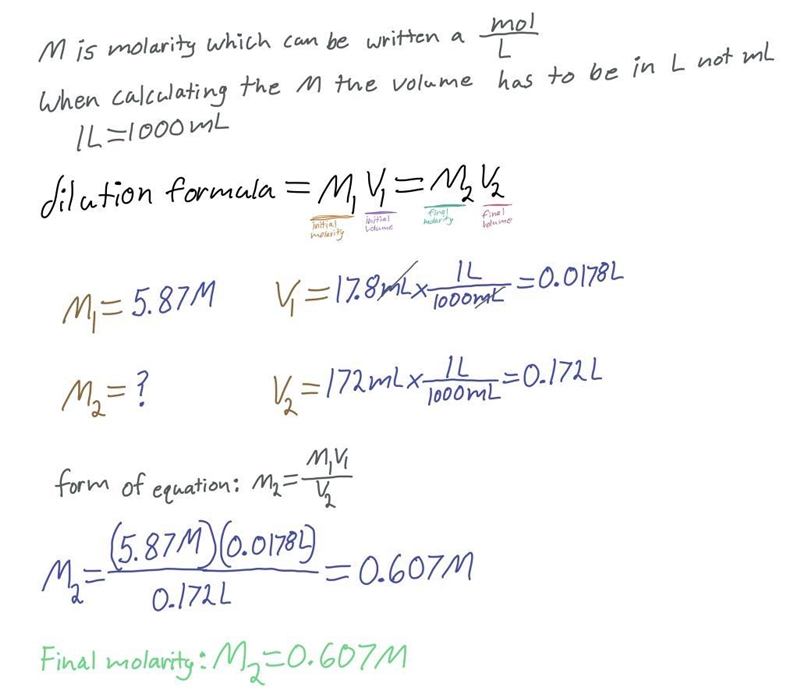 M is molarity which can be written a mol/L
When calculating the M the volume has to be in L not mL
1L=1000mL
dilution formula = M₁V₁=M₂V₂
initial molarity initial volume final molarity final volume
M₁=5.87M V₁=17.8mL×1L/1000mL=0.0178L
M₂=? V₂=172mL×1L/1000mL=0.172L
form of equation: M₂=M₁V₁/V₂
M₂=(5.87M)(0.0178L)/0.172L=0.607M
Final molarity: M₂=0.607M